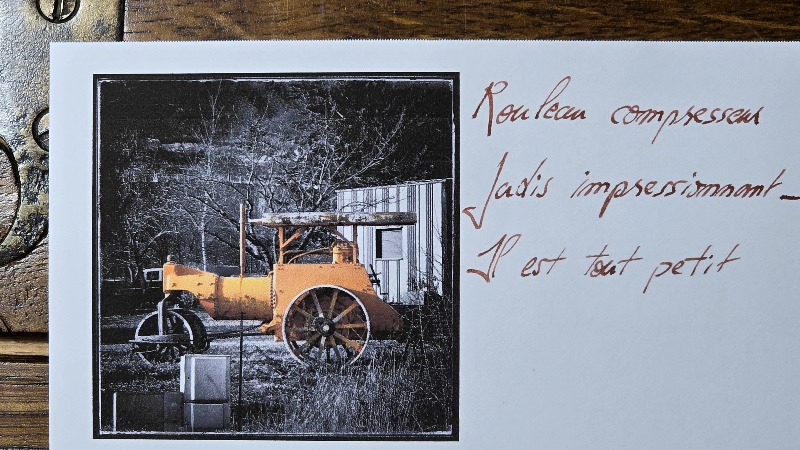 Rouleau compresseur
Jadis impressionnant_
Il est tout petit